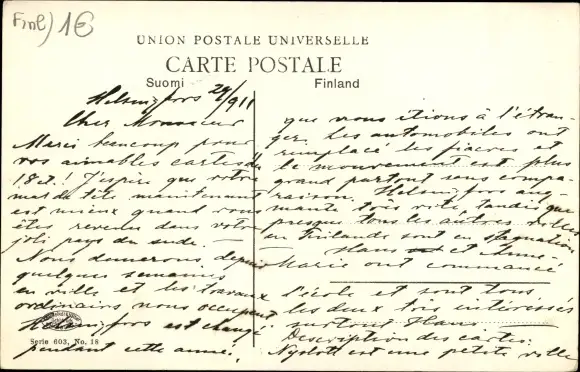 Finl) 1€
UNION POSTALE UNIVERSELLE
CARTE POSTALE
Suomi Finland
Helsingfors 29/9 11
Cher Monsieur
Merci beaucoup pour
vos aimables cartes du
18 ct! J'espère que votre
mal de tête maintenant
est mieux quand vous
êtes revenu dans votre
joli pays du sude.
Nous demeurons depuis
quelques semaines
en ville et les travaux
ordinaires nous occupent
Helsingfors est changé
pendant cette année,
Serie 603, No. 18
que nous étions à l'étran-
ger. Les automobiles ont
remplacé les fiacres et
le mouvement est plus
grand partout sans compa-
raison. Helsingfors aug-
mente très vite tandis que
presque tous les autres villes
en Finlande sont en stagnation
Hans et Anne-
Marie ont commencé
l'école et sont tous
les deux très intéressés
surtout Hans.
Description des cartes:
Nyslott est une petite ville